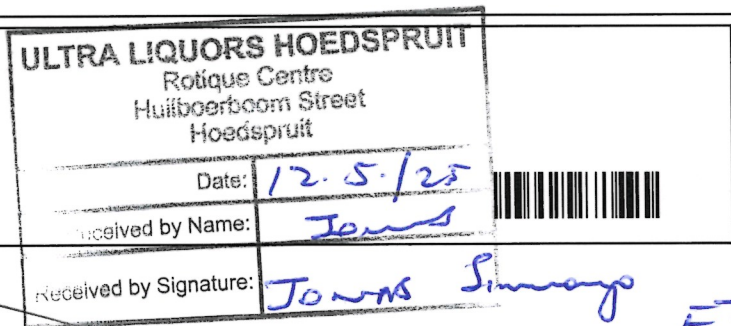 ULTRA LIQUORS HOEDSPRUIT
Rotique Centre
Huilboerboom Street
Hoedspruit
Date: 12.5./25
Received by Name: Jonas
Received by Signature: Jonas